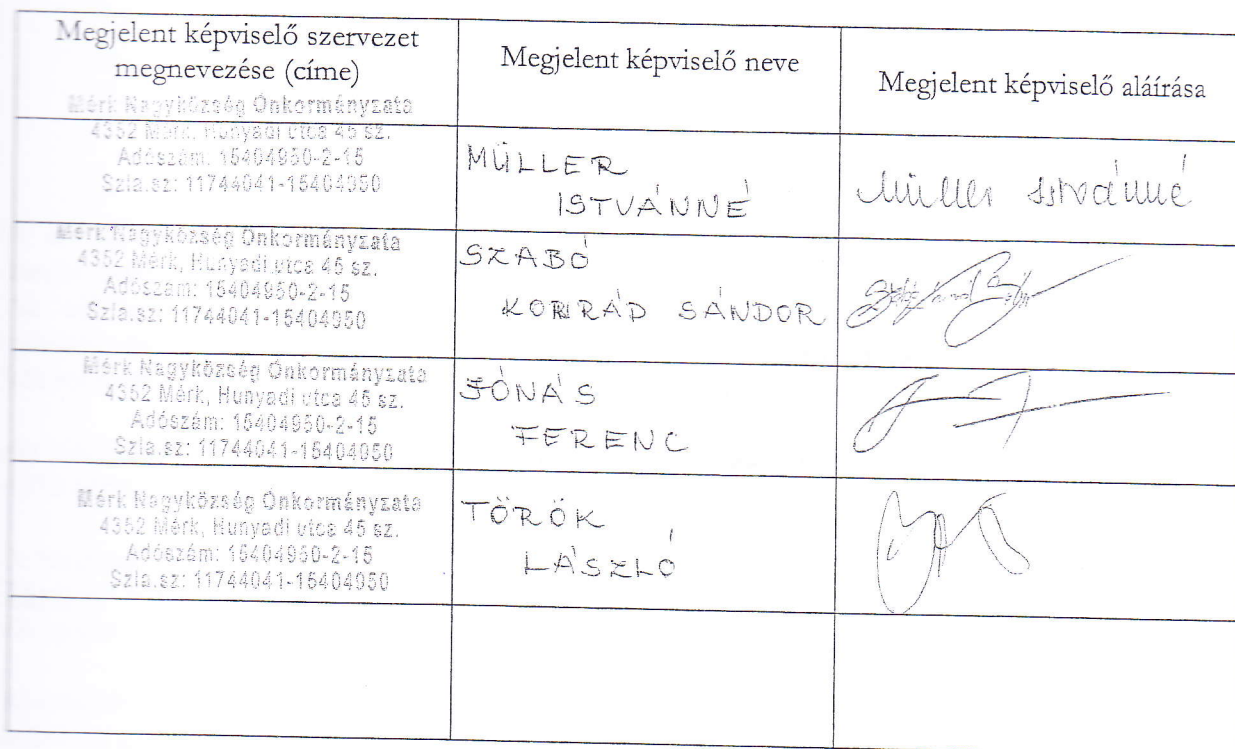 Megjelent képviselő szervezet
megnevezése (címe)
Megjelent képviselő neve
Megjelent képviselő aláírása
Mérk Nagyközség Önkormányzata
4352 Mérk, Hunyadi utca 45 sz.
Adószám: 15404950-2-15
Szla.sz: 11744041-15404950
MÜLLER
ISTVÁNNÉ
Müller Istvánné
Mérk Nagyközség Önkormányzata
4352 Mérk, Hunyadi utca 45 sz.
Adószám: 15404950-2-15
Szla.sz: 11744041-15404950
SZABÓ
KONRÁD SÁNDOR
Mérk Nagyközség Önkormányzata
4352 Mérk, Hunyadi utca 45 sz.
Adószám: 15404950-2-15
Szla.sz: 11744041-15404950
JÓNÁS
FERENC
Mérk Nagyközség Önkormányzata
4352 Mérk, Hunyadi utca 45 sz.
Adószám: 15404950-2-15
Szla.sz: 11744041-15404950
TÖRÖK
LÁSZLÓ